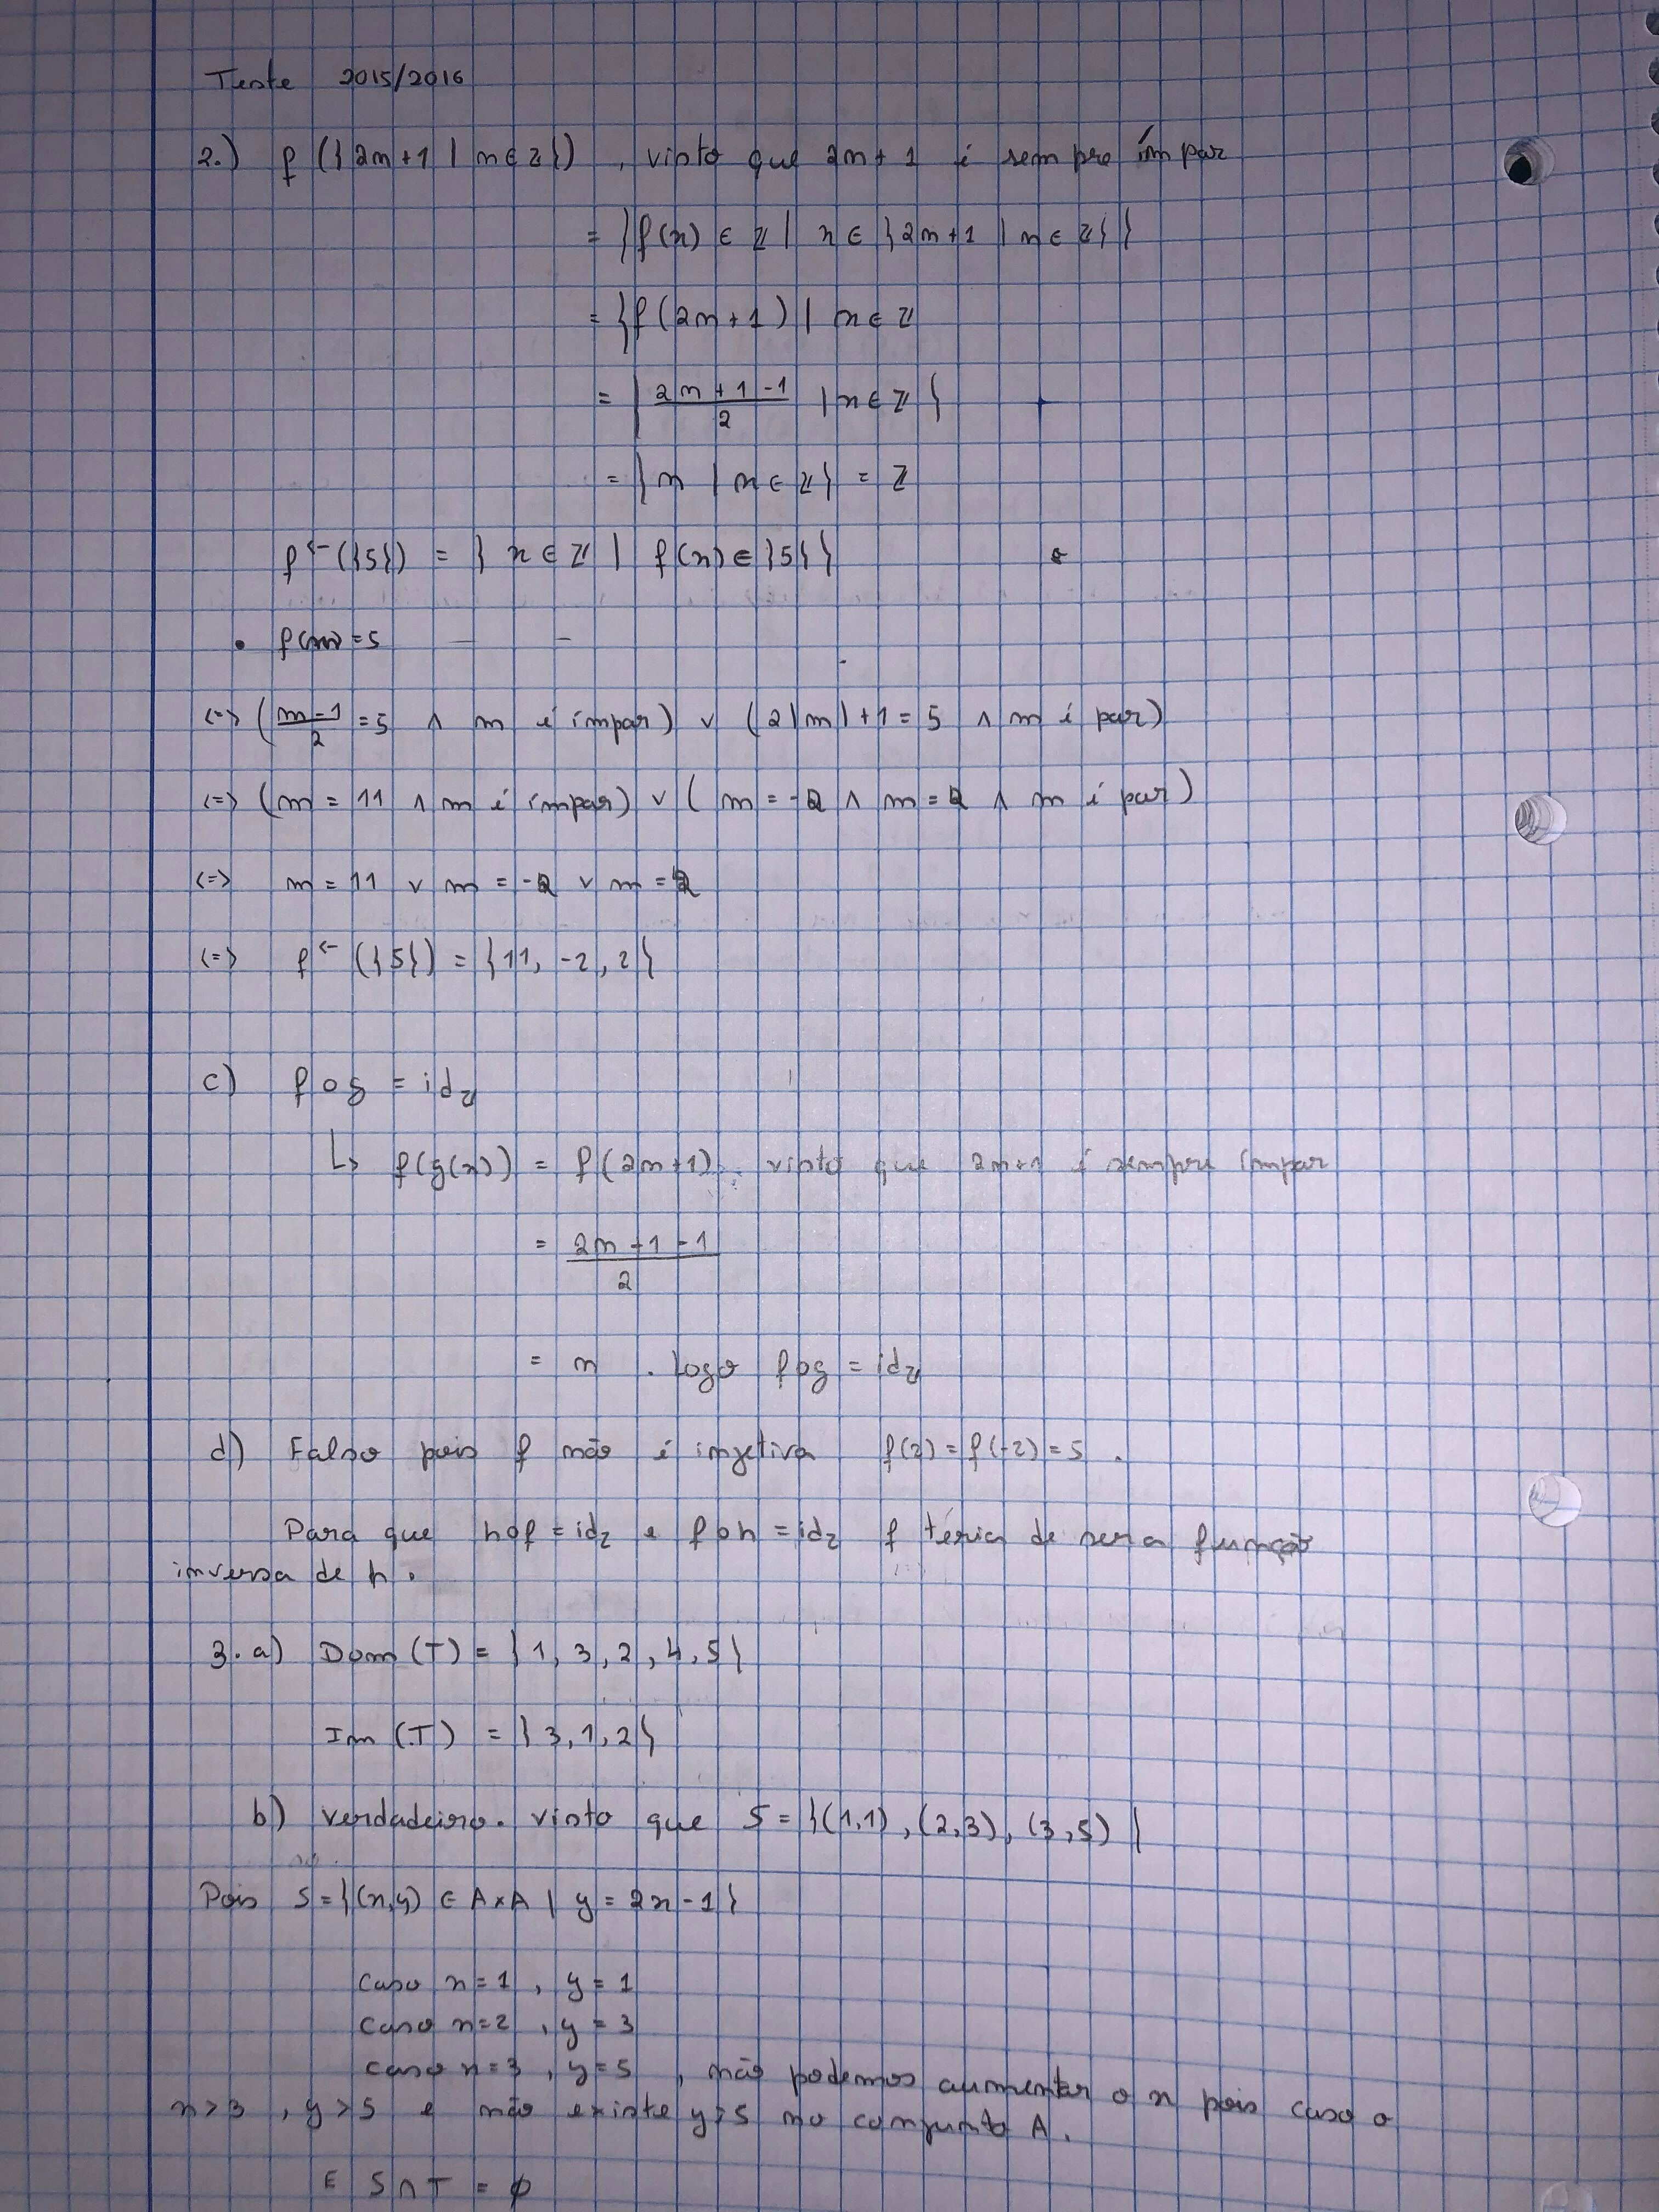 Teste 2015/2016
2.) f ({2n+1 | n∈ℤ}) , visto que 2n+1 é sempre ímpar
= {f(x) ∈ ℤ | x ∈ {2n+1 | n∈ℤ}}
= {f(2n+1) | n∈ℤ
= {(2n+1-1)/2 | n∈ℤ}
= {n | n∈ℤ} = ℤ
f^← ({5}) = { x∈ℤ | f(x)∈{5}}
• f(n) = 5
<=> ((n-1)/2 = 5 ∧ n é ímpar) ∨ (2|n|+1 = 5 ∧ n é par)
<=> (n = 11 ∧ n é ímpar) ∨ ( n = -2 ∧ n = 2 ∧ n é par)
<=> n = 11 ∨ n = -2 ∨ n = 2
<=> f^← ({5}) = {11, -2, 2}
c) f o g = id_ℤ
↳ f(g(x)) = f(2n+1), visto que 2n+1 é sempre ímpar
= (2n+1-1)/2
= n . Logo fog = id_ℤ
d) Falso pois f não é injetiva f(2) = f(-2) = 5 .
Para que hof = id_ℤ e foh = id_ℤ f téria de ser a função
inversa de h .
3. a) Dom (T) = {1, 3, 2, 4, 5}
Im (T) = {3, 1, 2}
b) Verdadeiro. Visto que S = {(1,1), (2,3), (3,5)}
Pois S = {(x,y) ∈ A×A | y = 2x-1}
caso x=1 , y = 1
caso x=2 , y = 3
caso x=3 , y=5 , não podemos aumentar o x pois caso o
x>3 , y>5 e não existe y>5 no conjunto A.
E S∩T = ∅